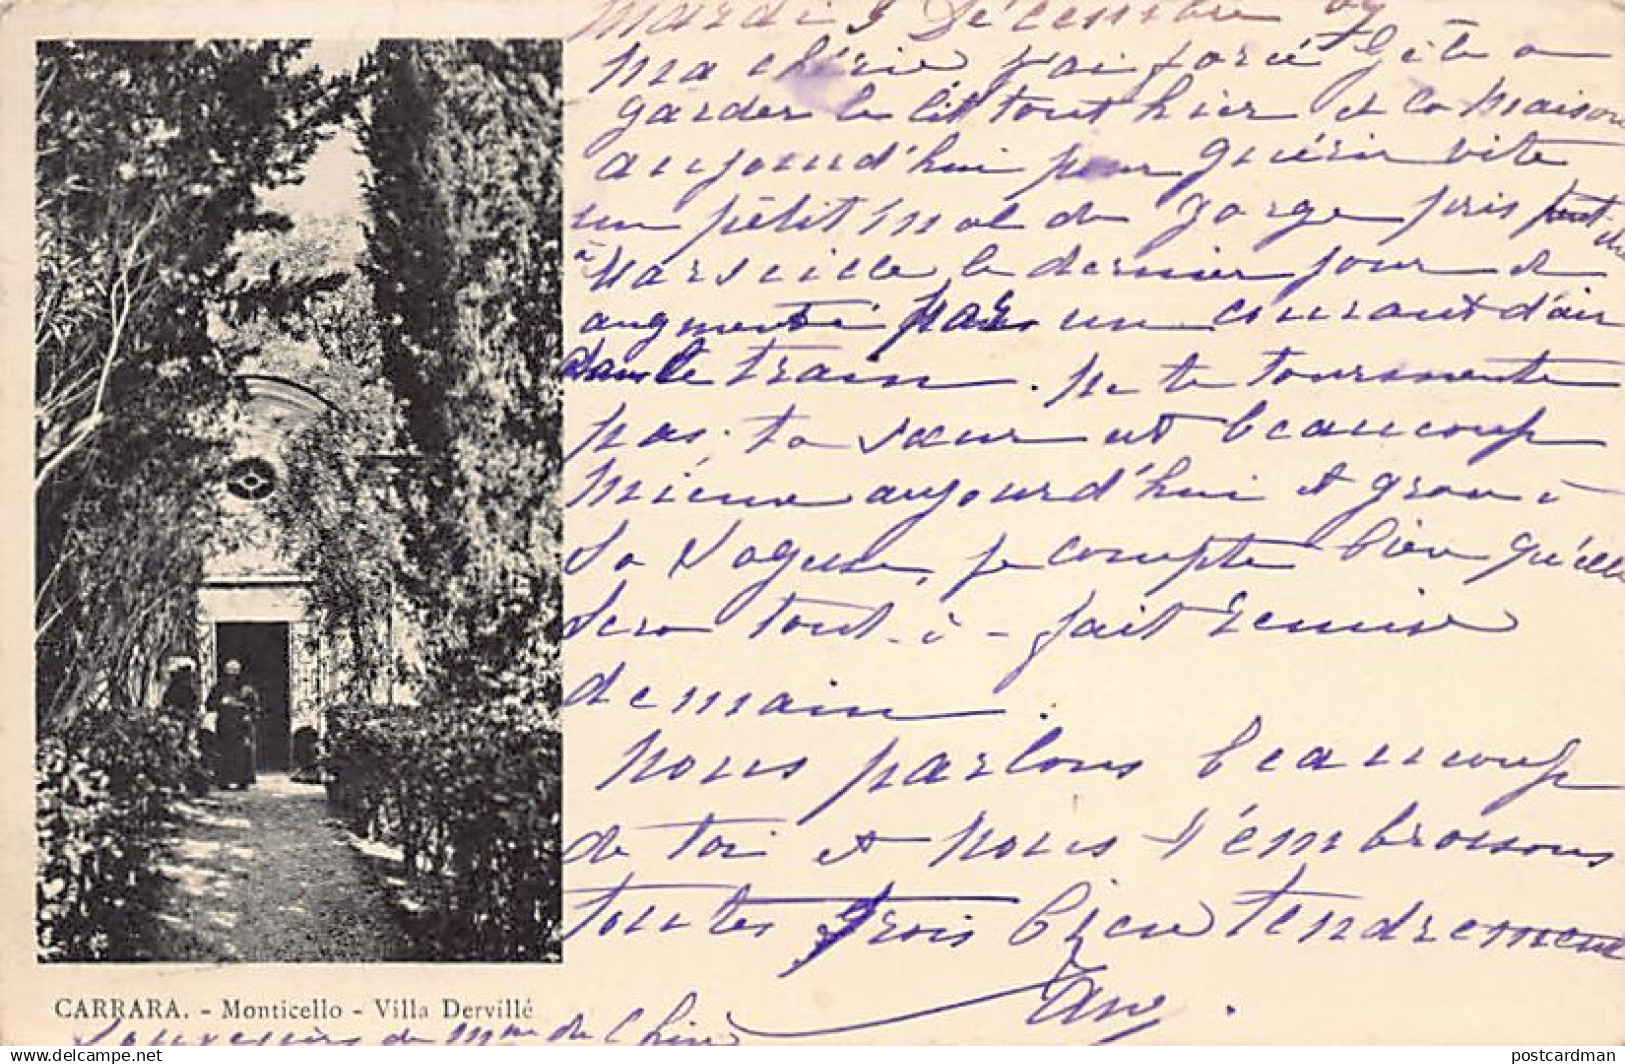 Mardi 5 Décembre
Ma chérie j'ai forcé Gété a
garder le lit tout hier et la maison
aujourd'hui pour guérir vite
un pétit mal de gorge pris peut-être
à Marseille le dernier jour et
augmenté par un courant d'air
dans le train. Ne te tourmente
pas. ta sœur est beaucoup
mieux aujourd'hui et grace à
sa sagesse, je compte bien qu'elle
sera tout-à-fait remise
demain.
Nous parlons beaucoup
de toi et nous t'embrassons
toutes trois bien tendrement
CARRARA. - Monticello - Villa Dervillé
Souvenirs de Mme de
postcardman
hippostcard.com